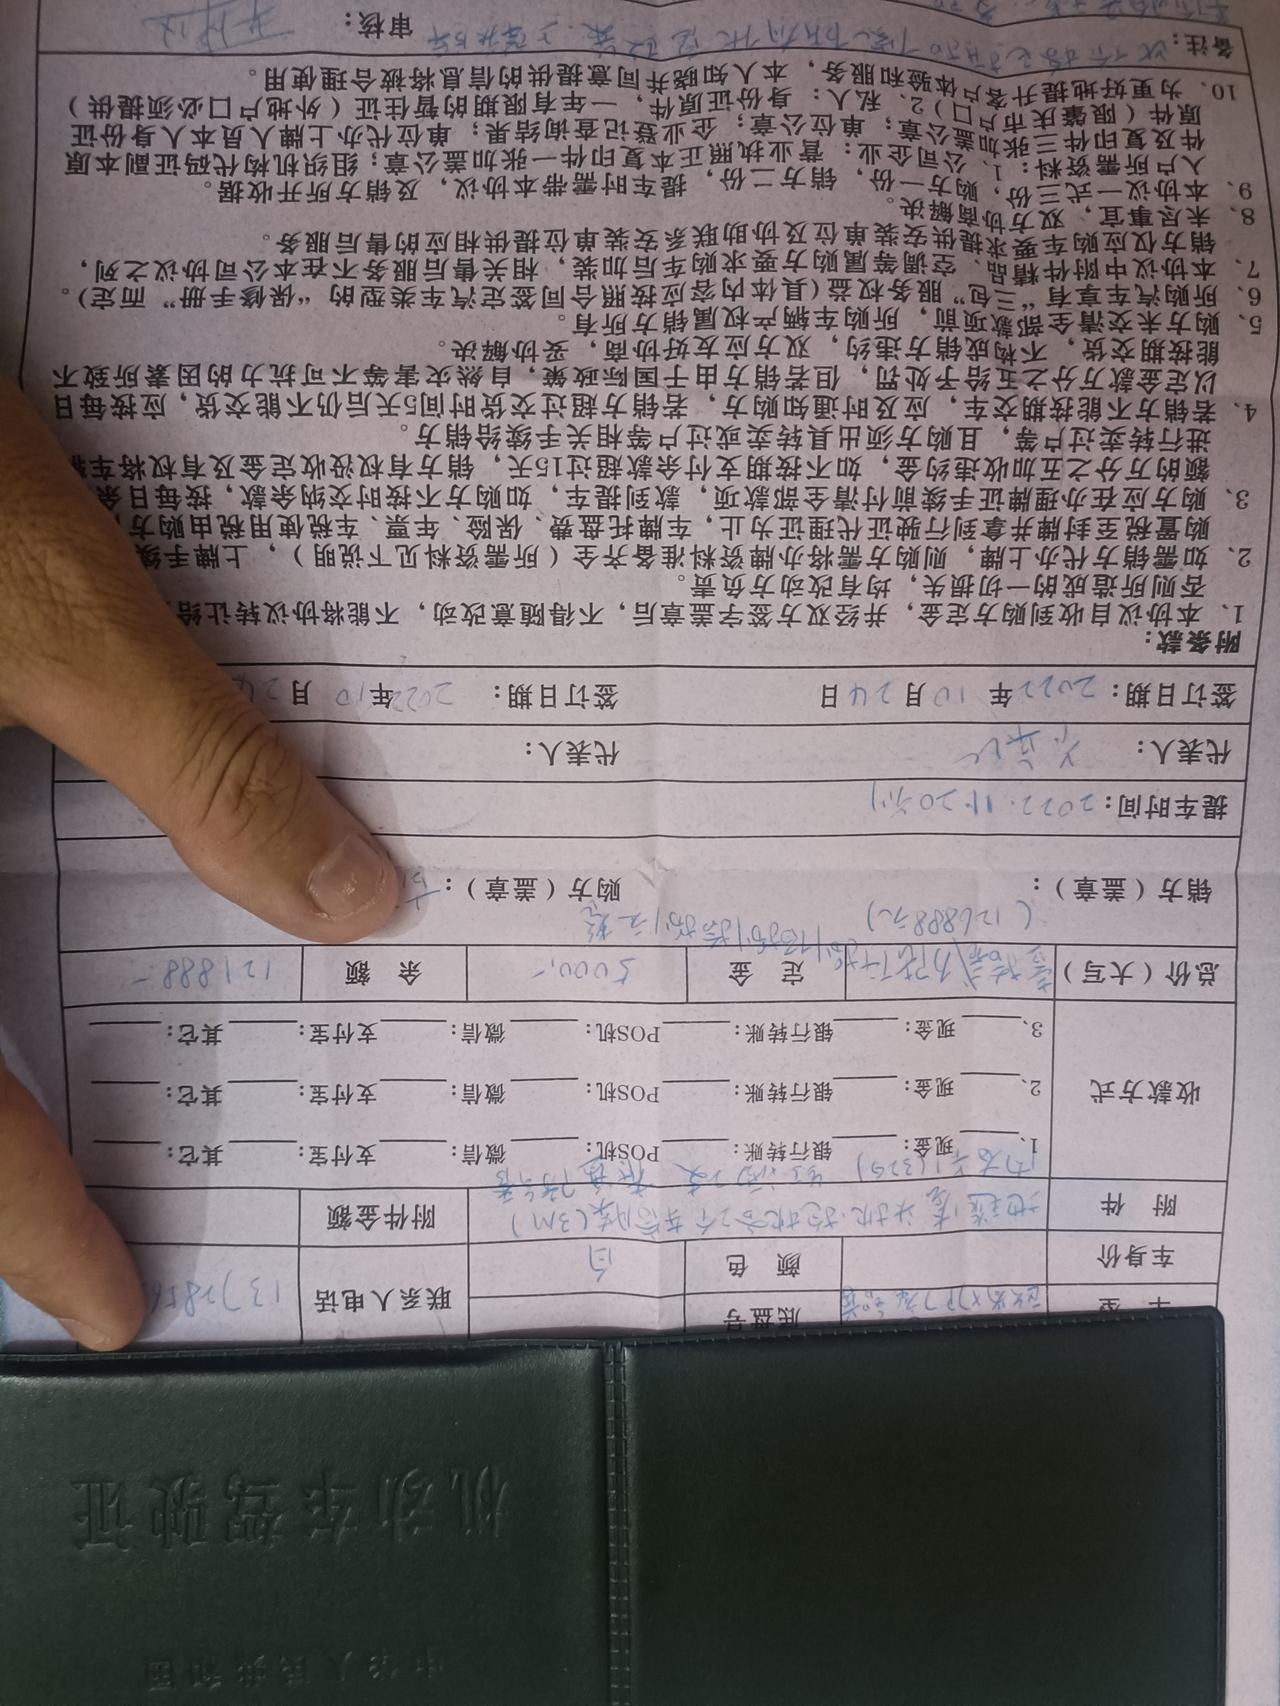 中华人民共和国
机动车驾驶证
车 型 底盘号
车身价 颜 色 白 联系人电话
附 件 附件金额
收款方式
1、 现金: 银行转账: POS机: 微信: 支付宝: 其它:
2、 现金: 银行转账: POS机: 微信: 支付宝: 其它:
3、 现金: 银行转账: POS机: 微信: 支付宝: 其它:
总价(大写) 定 金 5000,- 余 额 121888-
(126888元)
销方(盖章): 购方(盖章):
提车时间: 2022.11.20前
代表人: 代表人:
签订日期: 2022年10月24日 签订日期: 2022年10月24
附条款:
1、本协议自收到购方定金,并经双方签字盖章后,不得随意改动,不能将协议转让给
否则所造成的一切损失,均有改动方负责。
2、如需销方代办上牌,则购方需将办牌资料准备齐全(所需资料见下说明),上牌手续
购置税至封牌并拿到行驶证代理证为止,车牌托盘费、保险、年票、车税使用税由购方
3、购方应在办理牌证手续前付清全部款项,款到提车,如购方不按时交纳余款,按每日余
额的万分之五加收违约金,如不按期支付余款超过15天,销方有权没收定金及有权将车
进行转卖过户等,且购方须出具转卖或过户等相关手续给销方。
4、若销方不能按期交车,应及时通知购方,若销方超过交货时间5天后仍不能交货,应按每日
以定金款万分之五给予处罚,但若销方由于国际政策,自然灾害等不可抗力的因素所致不
能按期交货,不构成销方违约,双方应友好协商,妥协解决。
5、购方未交清全部款项前,所购车辆产权属销方所有。
6、所购汽车享有“三包”服务权益(具体内容应按照合同签定汽车类型的“保修手册”而定)。
7、本协议中附件精品、空调等属购方要求购车后加装,相关售后服务不在本公司协议之列,
销方仅应购车要求提供安装单位及协助联系安装单位提供相应的售后服务。
8、未尽事宜,双方协商解决。
9、本协议一式三份,购方一份,销方二份,提车时需带本协议,及销方所开收据。
入户所需资料:1、公司企业:营业执照正本复印件一张加盖公章;组织机构代码证副本原
件及复印件三张加盖公章;单位公章;企业登记查询结果;单位代办上牌人员本人身份证
原件(限肇庆市户口)2、私人:身份证原件,一年有限期的暂住证(外地户口必须提供)
10、为更好地提升客户体验和服务,本人知晓并同意提供的信息将被合理使用。
备注: 审核: